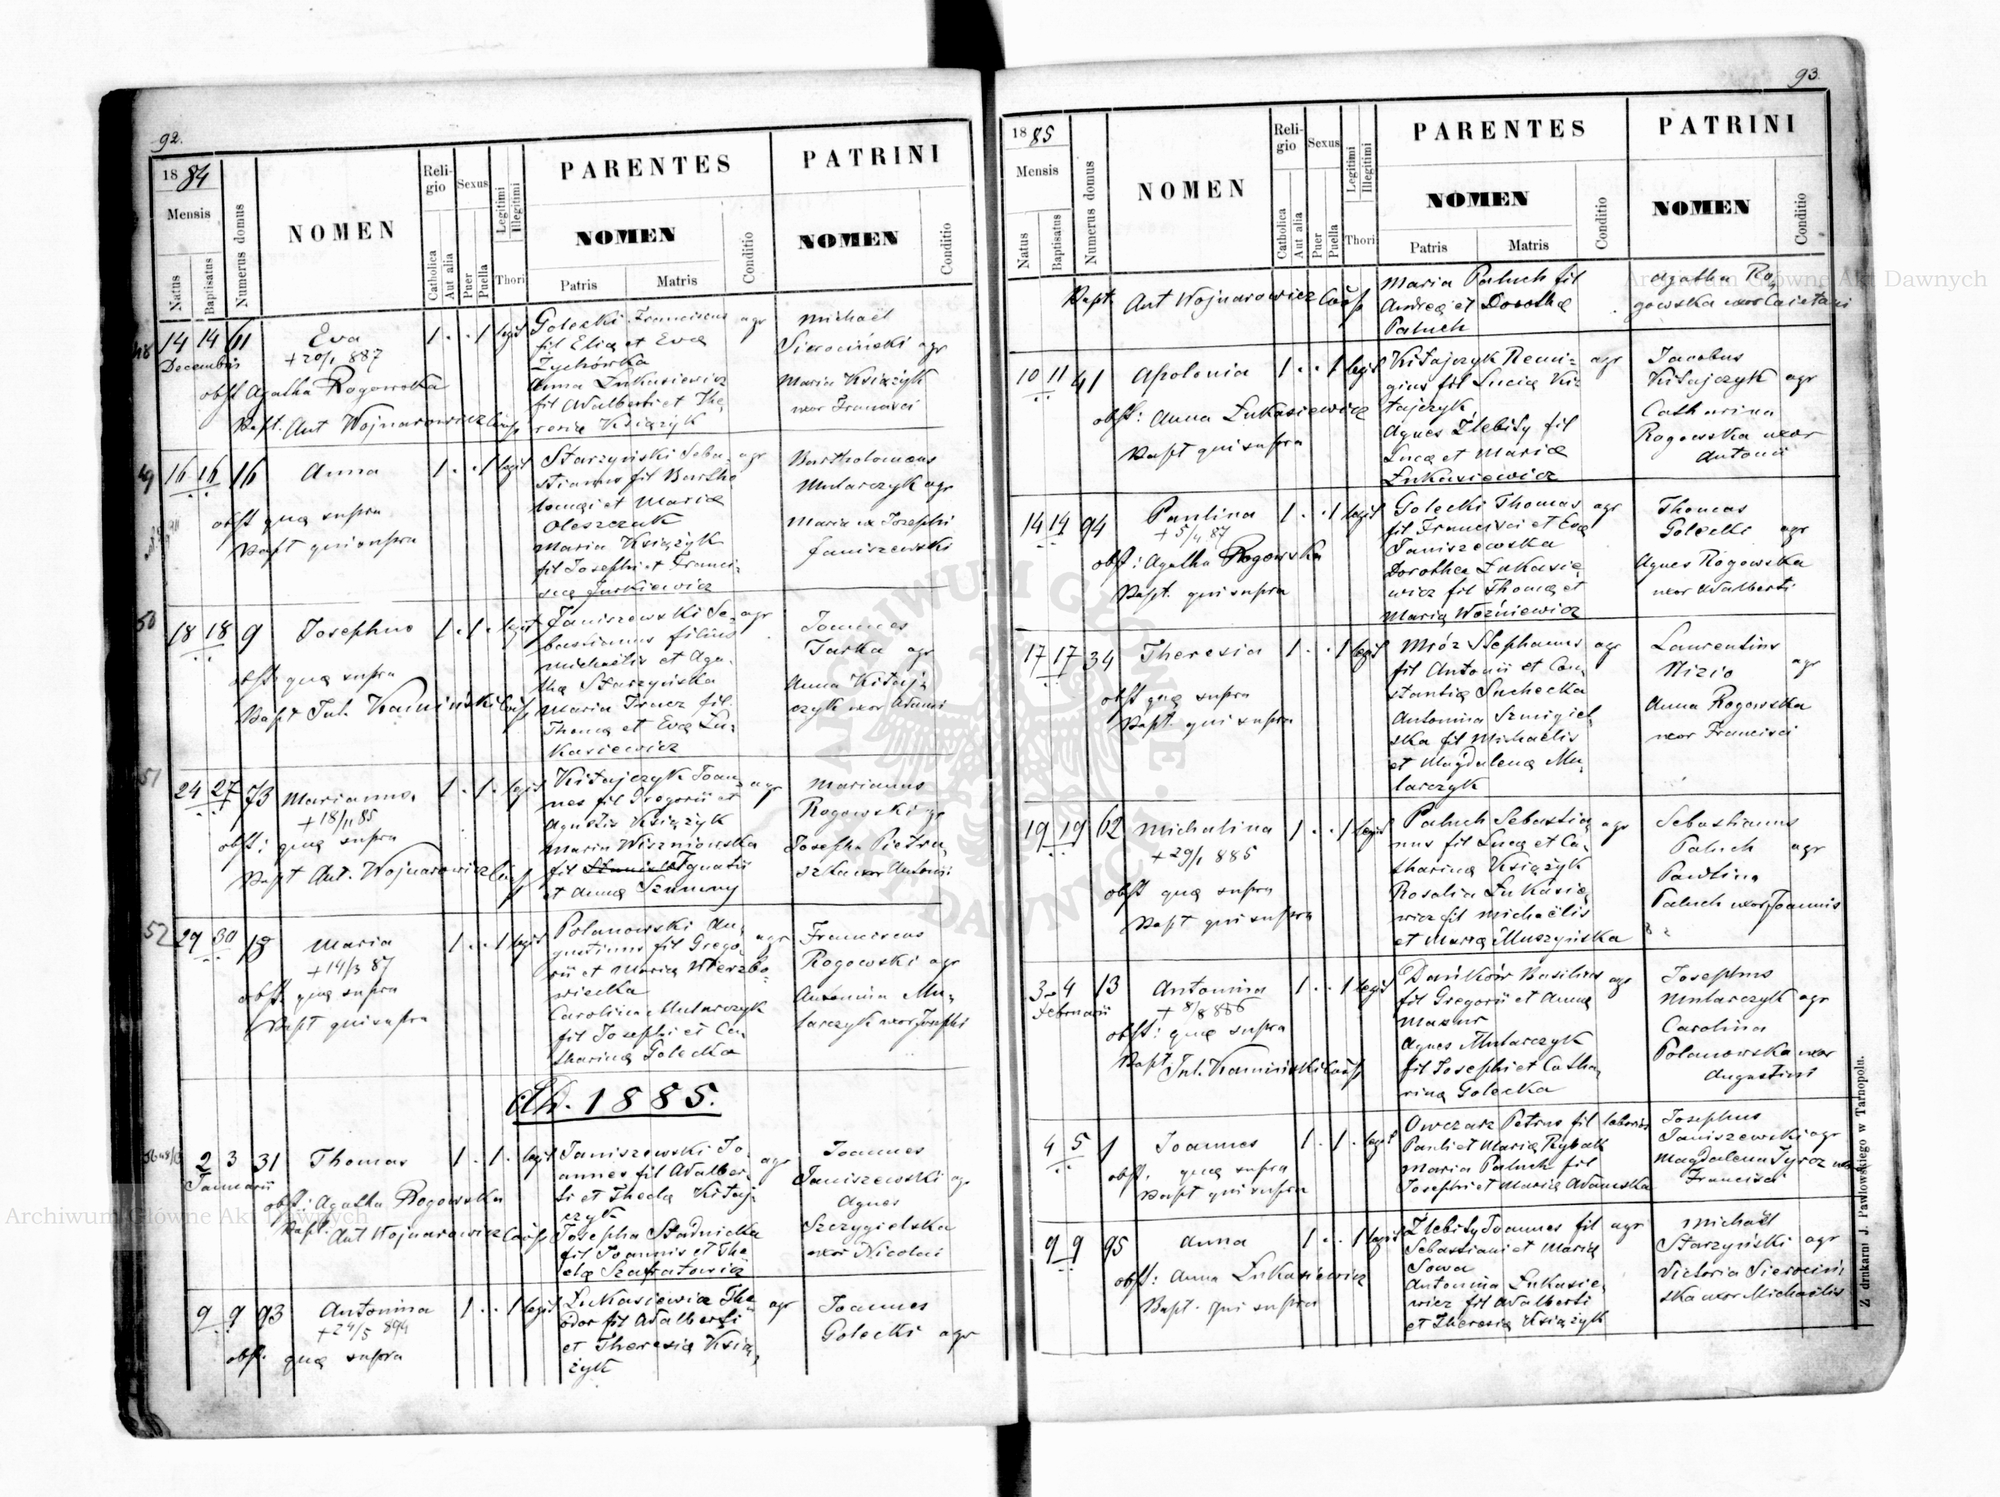 92.
18 84
Mensis
Natus
Baptisatus
Numerus domus
NOMEN
Religio
Catholica
Aut alia
Sexus
Puer
Puella
Legitimi
Illegitimi
Thori
PARENTES
NOMEN
Patris
Matris
Conditio
PATRINI
NOMEN
Conditio
48
14 14 61 Eva 1 . . 1 legit
Decembris
+ 20/1 887
obst Agatha Rogowska
Bapt. Ant Wojnarowicz Coop
Golecki Franciscus agr
fil Elią et Evą
Żychówka
Anna Łukasiewicz
fil Adalberti et The
resią Książyk
Michaël
Sierociński agr
Maria Książyk
uxor Francisci
49
16 16 16 Anna 1 . . 1 legit
obst quę supra
Bapt qui supra
Starzyński Seba- agr
stianus fil Bartho
lomęi et Marią
Oleszczuk
Maria Książyk
fil Josephi et Franci-
scą Jurkiewicz
Bartholomeus
Mularczyk agr
Maria ux Josephi
Janiszewski
50
18 18 9 Josephus 1 . 1 . legit
obst quę supra
Bapt Jul. Kamiński Coop
Janiszewski Se- agr
bastianus filius
Michaëlis et Aga-
thą Starzyńska
Maria Tracz fil.
Thomą et Evą Łu-
kasiewicz
Joannes
Tarka agr
Anna Kitaj-
czyk uxor Adami
51
24 27 73 Marianna 1 . 1 . legit
+ 18/11 85
obst: quę supra
Bapt Ant. Wojnarowicz Coop
Kitajczyk Joan- agr
nes fil Gregorii et
Agnetis Książyk
Maria Wiszniowska
fil Ignatii
et Anną Szumny
Marianus
Rogowski agr
Josepha Pietru-
szka uxor Antonii
52
29 30 18 Maria 1 . . 1 legit
+ 14/3 87
obst. quę supra
Bapt qui supra
Polanowski Au- agr
gustinus fil Grego-
rii et Marią Wierzbo-
wiecka
Carolina Mularczyk
fil Josephi et Ca-
thariną Golecka
Franciscus
Rogowski agr
Antonina Mu-
larczyk uxor Josephi
Ad. 1885.
2 3 31 Thomas 1 . 1 . legit
Januarii
obst: Agatha Rogowska
Bapt. Ant Wojnarowicz Coop
Janiszewski Jo- agr
annes fil Adalber-
ti et Theclą Kitaj-
czyk
Josepha Stadnicka
fil Joannis et The
clą Szafratowicz
Joannes
Janiszewski agr
Agnes
Szczygielska
uxor Nicolai
9 9 93 Antonina 1 . . 1 legit
+ 24/5 894
obst. quę supra
Łukasiewicz The- agr
odor fil Adalberti
et Theresią Ksią-
żyk
Joannes
Golecki agr
93.
18 85
Mensis
Natus
Baptisatus
Numerus domus
NOMEN
Religio
Catholica
Aut alia
Sexus
Puer
Puella
Legitimi
Illegitimi
Thori
PARENTES
NOMEN
Patris
Matris
Conditio
PATRINI
NOMEN
Conditio
Bapt. Ant Wojnarowicz Coop
Maria Paluch fil
Andreą et Dorothą
Paluch
Agatha Ro
gowska uxor Caietani
10 11 41 Apolonia 1 . . 1 legit
obst: Anna Łukasiewicz
Bapt qui supra
Kitajczyk Remi- agr
gius fil Lucią Ki-
tajczyk
Agnes Zlebity fil
Lucą et Marią
Łukasiewicz
Jacobus
Kitajczyk agr
Catharina
Rogowska uxor
Antonii
14 14 94 Paulina 1 . . 1 legit
+ 5/4 87
obst: Agatha Rogowska
Bapt. qui supra
Golecki Thomas agr
fil Francisci et Evą
Janiszewska
Dorothea Łukasie
wicz fil Thomą et
Marią Woźniewicz
Thomas
Golecki agr
Agnes Rogowska
uxor Adalberti
17 17 34 Theresia 1 . . 1 legit
obst quę supra
Bapt. qui supra
Mróz Stephanus agr
fil Antonii et Con-
stantią Suchecka
Antonina Szmigiel
ska fil Michaëlis
et Magdaleną Mu-
larczyk
Laurentius
Nizio agr
Anna Rogowska
uxor Francisci
19 19 62 Michalina 1 . . 1 legit
+ 29/1 885
obst quę supra
Bapt qui supra
Paluch Sebastia agr
nus fil Lucą et Ca-
thariną Książyk
Rosalia Łukasie
wicz fil Michaëlis
et Marią Muszyńska
Sebastianus
Paluch agr
Paulina
Paluch uxor Joannis
3 4 13 Antonina 1 . . 1 legit
Februarii
+ 8/8 886
obst: quę supra
Bapt. Jul. Kamiński Coop
Dańków Basilius agr
fil Gregorii et Anną
Mazur
Agnes Mularczyk
fil Josephi et Catha-
riną Golecka
Josephus
Mularczyk agr
Carolina
Polanowska uxor
Augustini
4 5 1 Joannes 1 . 1 . legit
obst. quę supra
Bapt qui supra
Owczarz Petrus fil laborios
Pauli et Marią Rybak
Maria Paluch fil
Josephi et Marią Adamska
Josephus
Janiszewski agr
Magdalena Gyroz uxor
Francisci
9 9 95 Anna 1 . . 1 legit
obst: Anna Łukasiewicz
Bapt. qui supra
Zlebity Joannes fil agr
Sebastiani et Marią
Sowa
Antonina Łukasie-
wicz fil Adalberti
et Theresią Książyk
Michaël
Starzyński agr
Victoria Sierociń
ska uxor Michaëlis
Z drukarni J. Pawłowskiego w Tarnopolu.
Archiwum Główne Akt Dawnych
Archiwum Główne Akt Dawnych
ARCHIWUM GŁÓWNE AKT DAWNYCH